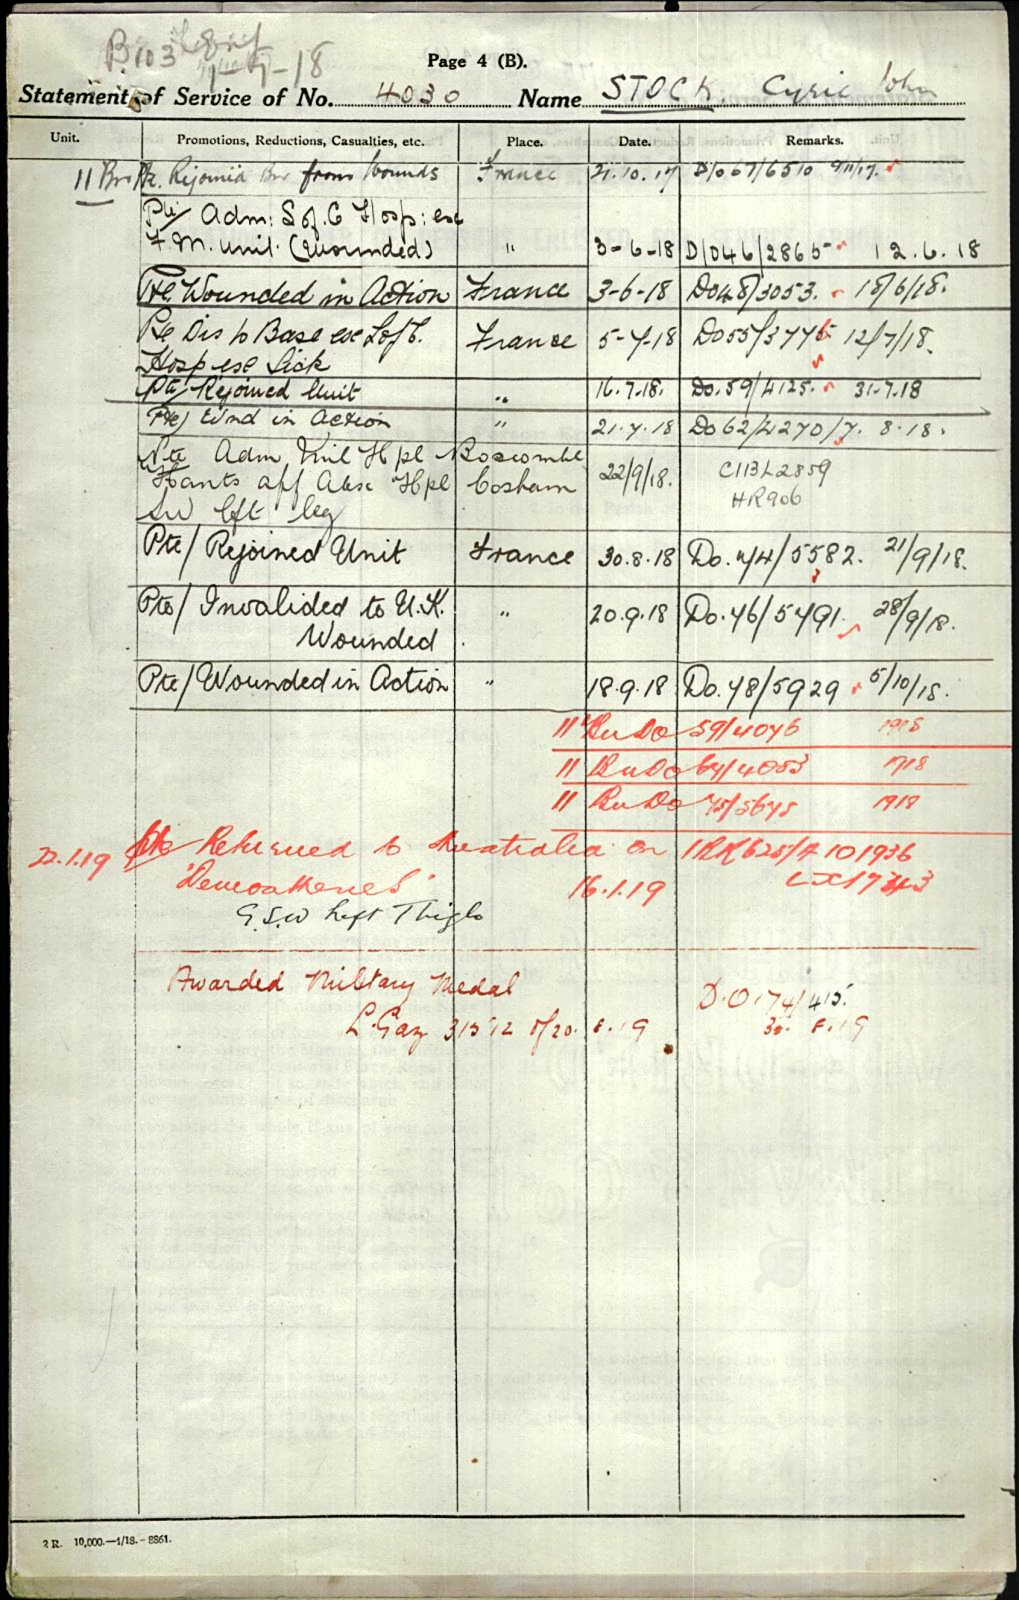 B103
1-7-18
Page 4 (B).
Statement of Service of No. 4030 Name STOCK. Cyril John
Unit. Promotions, Reductions, Casualties, etc. Place. Date. Remarks.
11 Bn Pte. Rejoined Bn from Wounds France 21.10.17 D/067/6510 9/11/17.
Pte/ Adm: S of. C Hosp: ex
F.M. Unit. (Wounded) " 3-6-18 D/046/2865 12.6.18
Pte. Wounded in Action France 3-6-18 Do48/3053. 18/6/18.
Pte Dis to Base ex Lof C.
Hosp ex Sick France 5-7-18 Do55/3775 12/7/18.
Pte/ Rejoined Unit " 16.7.18. Do.59/4125. 31.7.18
Pte/ Wnd in Action " 21.7.18 Do62/4270/7. 8.18.
Pte Adm Mil Hpl Boscombe
Hants aff Alex Hpl Cosham 22/9/18. C113L2859
SW lft leg HR906
Pte/ Rejoined Unit France 30.8.18 Do. 74/5582. 21/9/18.
Pte/ Invalided to U.K.
Wounded " 20.9.18 Do.76/5791. 28/9/18.
Pte/ Wounded in Action " 18.9.18 Do.78/5929 5/10/18.
11 Bn Do 59/4046 1918
11 Bn Do 64/4053 1918
11 Bn Do 75/5675 1918
Pte Returned to Australia on 1RR625/7 101936
"Demosthenes" 16.1.19
G.S.W Left Thigh
Awarded Military Medal D.O.74/415.
L. Gaz 31512 20.8.19 30.8.19
2 R. 10,000.—1/18.—8861.